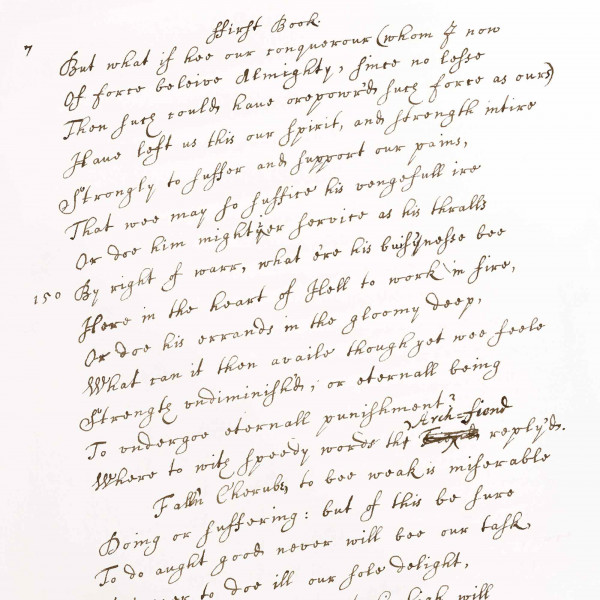 7
ffirst Book
But what if hee our conquerour (whom I now
Of force beleive Almighty, since no lesse
Then such could have orepow'rd such force as ours)
Have left us this our spirit, and strength intire
Strongly to suffer and support our pains,
That wee may so suffice his vengefull ire
Or doe him mightyer service as his thralls
150 By right of warr, what e're his busynesse bee
Here in the heart of Hell to work in fire,
Or doe his errands in the gloomy deep,
What can it then availe though yet wee feele
Strength undiminish'd, or eternall being
To undergoe eternall punishment?
Where to with speedy words the Arch-fiend reply'd.
Fall'n Cherub, to bee weak is miserable
Doing or suffering: but of this be sure
To do aught good never will bee our task
to doe ill our sole delight,
will